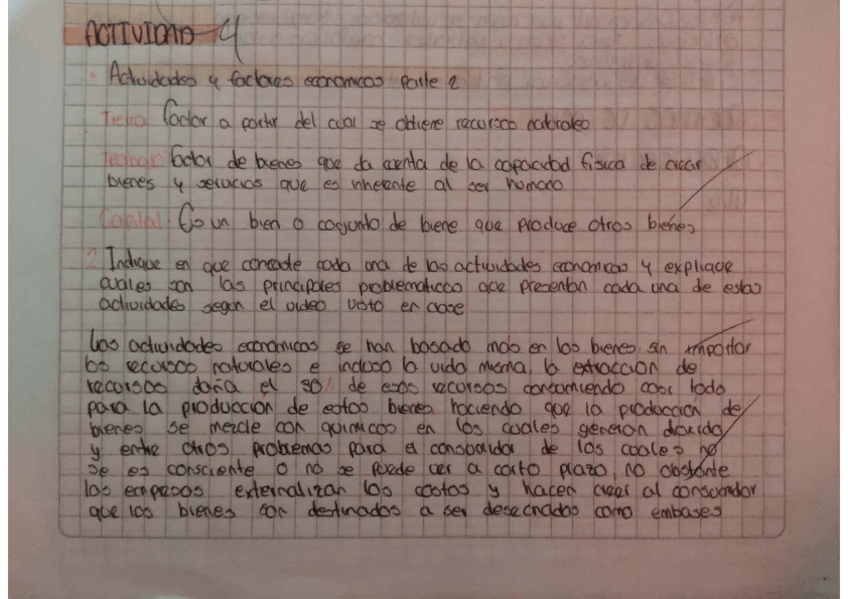 ACTIVIDAD 4
Actividades y factores economicos parte 2
Tierra: factor a partir del cual se obtiene recursos naturales
Trabajo: factor de bienes que da cuenta de la capacidad fisica de crear
bienes y servicios que es inherente al ser humano
Capital: Es un bien o conjunto de biene que produce otros bienes
2. Indique en que concede cada una de las actividades economicas y explique
cuales son las principales problematicas que presentan cada una de estas
actividades según el video visto en clase
Las actividades economicas se han basado mas en los bienes sin importar
los recursos naturales e incluso la vida misma, la extraccion de
recursos daña el 30% de esos recursos consumiendo casi todo
para la producción de estos bienes haciendo que la producción de
bienes se mezcle con quimicos en los cuales generan dioxido
y entre otros problemas para el consumidor de los cuales no
se es consciente o no se puede ver a corto plazo, no obstante
las empresas externalizan los costos y hacen creer al consumidor
que los bienes son destinados a ser desechados como embases